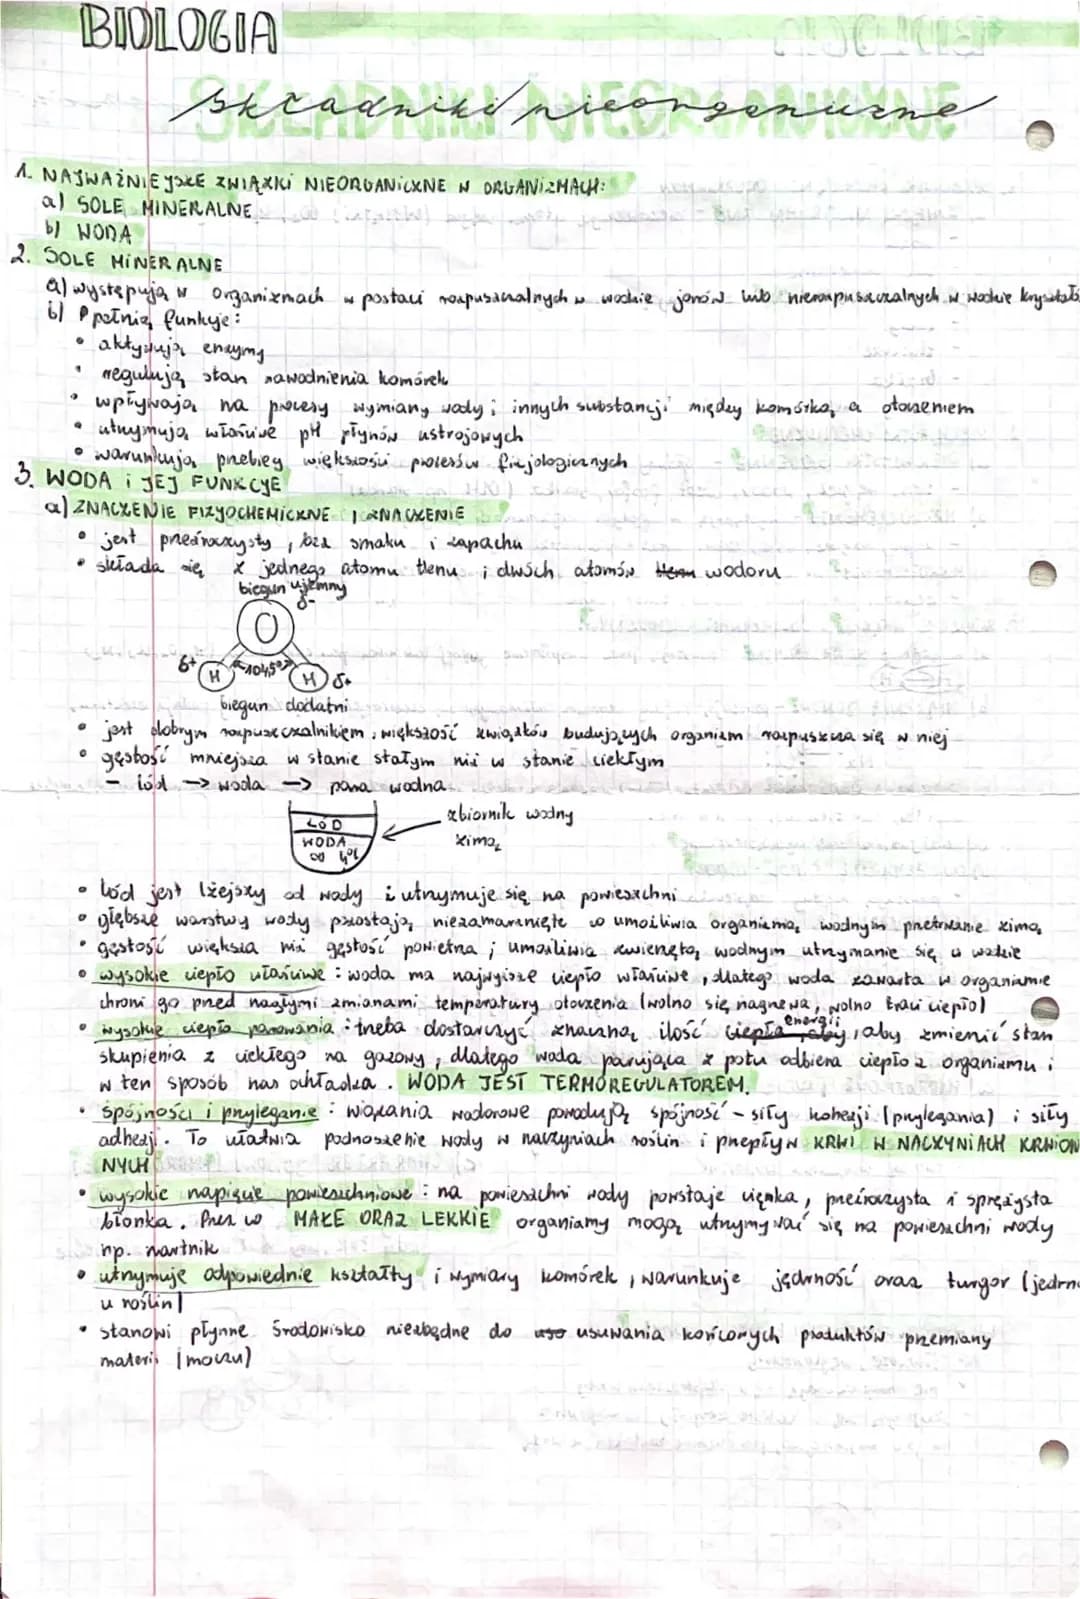 BIOLOGIA
Składniki nieorganiczne
SKŁADNIKI NIEORGANICZNE
1. NAJWAŻNIEJSZE ZWIĄZKI NIEORGANICZNE W ORGANIZMACH:
a) SOLE MINERALNE
b) WODA
2. SOLE MINERALNE
a) występują w organizmach w postaci rozpuszczalnych w wodzie jonów lub nierozpuszczalnych w wodzie kryształó
b) Ppełnią funkcje:
• aktywują enzymy
• regulują stan nawodnienia komórek
• wpływają na procesy wymiany wody i innych substancji między komórką a otoczeniem
• utrzymują właściwe pH płynów ustrojowych
• warunkują przebieg większości procesów fizjologicznych
3. WODA i JEJ FUNKCJE
a) ZNACZENIE FIZYOCHEMICZNE I ZNACZENIE
• jest przeźroczysty, bez smaku i zapachu
• składa się z jednego atomu tlenu i dwóch atomów tlenu wodoru
biegun ujemny
δ-
O
δ+ H 104,5° H δ+
biegun dodatni
• jest dobrym rozpuszczalnikiem, większość związków budujących organizm rozpuszcza się w niej
• gęstość mniejsza w stanie stałym niż w stanie ciekłym
- lód → woda → para wodna
LÓD
WODA
do 4°C
zbiornik wodny
zimą
• lód jest lżejszy od wody i utrzymuje się na powierzchni
• głębsze warstwy wody pozostają niezamarznięte co umożliwia organizmą wodnym przetrwanie zimą
• gęstość większa niż gęstość powietrza; umożliwia zwierzętą wodnym utrzymanie się w wodzie
• wysokie ciepło właściwe: woda ma najwyższe ciepło właściwe, dlatego woda zawarta w organizmie
chroni go przed nagłymi zmianami temperatury otoczenia (wolno się nagrzewa, wolno traci ciepło)
• wysokie ciepło parowania: trzeba dostarczyć znaczną ilość ciepła, aby energii, aby zmienić stan
skupienia z ciekłego na gazowy, dlatego woda parująca z potu odbiera ciepło z organizmu i
w ten sposób nas ochładza. WODA JEST TERMOREGULATOREM.
• spójności i przyleganie: wiązania wodorowe powodują spójność - siły kohezji (przylegania) i siły
adhezji. To ułatwia podnoszenie wody w naczyniach roślin i przepływ KRWI W NACZYNIACH KRWION
NYCH
• wysokie napięcie powierzchniowe: na powierzchni wody powstaje cienka, przeźroczysta i sprężysta
błonka. Przez co MAŁE ORAZ LEKKIE organizmy mogą utrzymywać się na powierzchni wody
np. nartnik
• utrzymuje odpowiednie kształty i wymiary komórek, warunkuje jędrność oraz turgor (jędrno
u roślin)
• stanowi płynne środowisko niezbędne do uso usuwania końcowych produktów przemiany
materii (moczu)